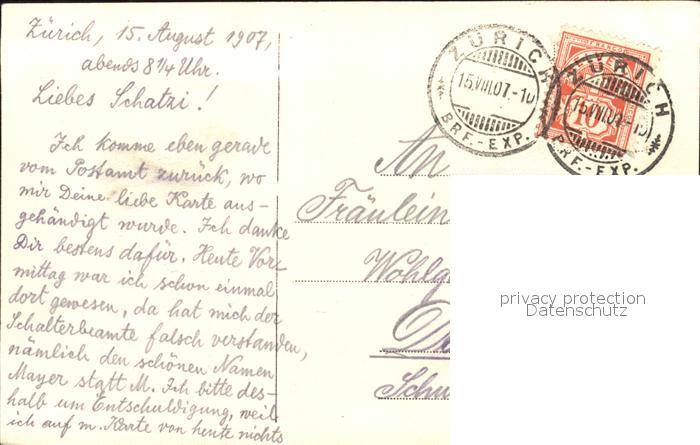 Zürich, 15. August 1907,
abends 8 1/4 Uhr.
Liebes Schatzi!
Ich komme eben gerade
vom Postamt zurück, wo
mir Deine liebe Karte aus-
gehändigt wurde. Ich danke
Dir bestens dafür. Heute Vor-
mittag war ich schon einmal
dort gewesen, da hat mich der
Schalterbeamte falsch verstanden,
nämlich den schönen Namen
Mayer statt M. Ich bitte des-
halb um Entschuldigung, weil
ich auf m. Karte von heute nichts
ZÜRICH
15.VIII.07.-10
BRF.-EXP.
FRANCO
10
ZÜRICH
15.VIII.07.-10
BRF.-EXP.
An
Fräulein
Wohlg
D
Schu
privacy protection
Datenschutz